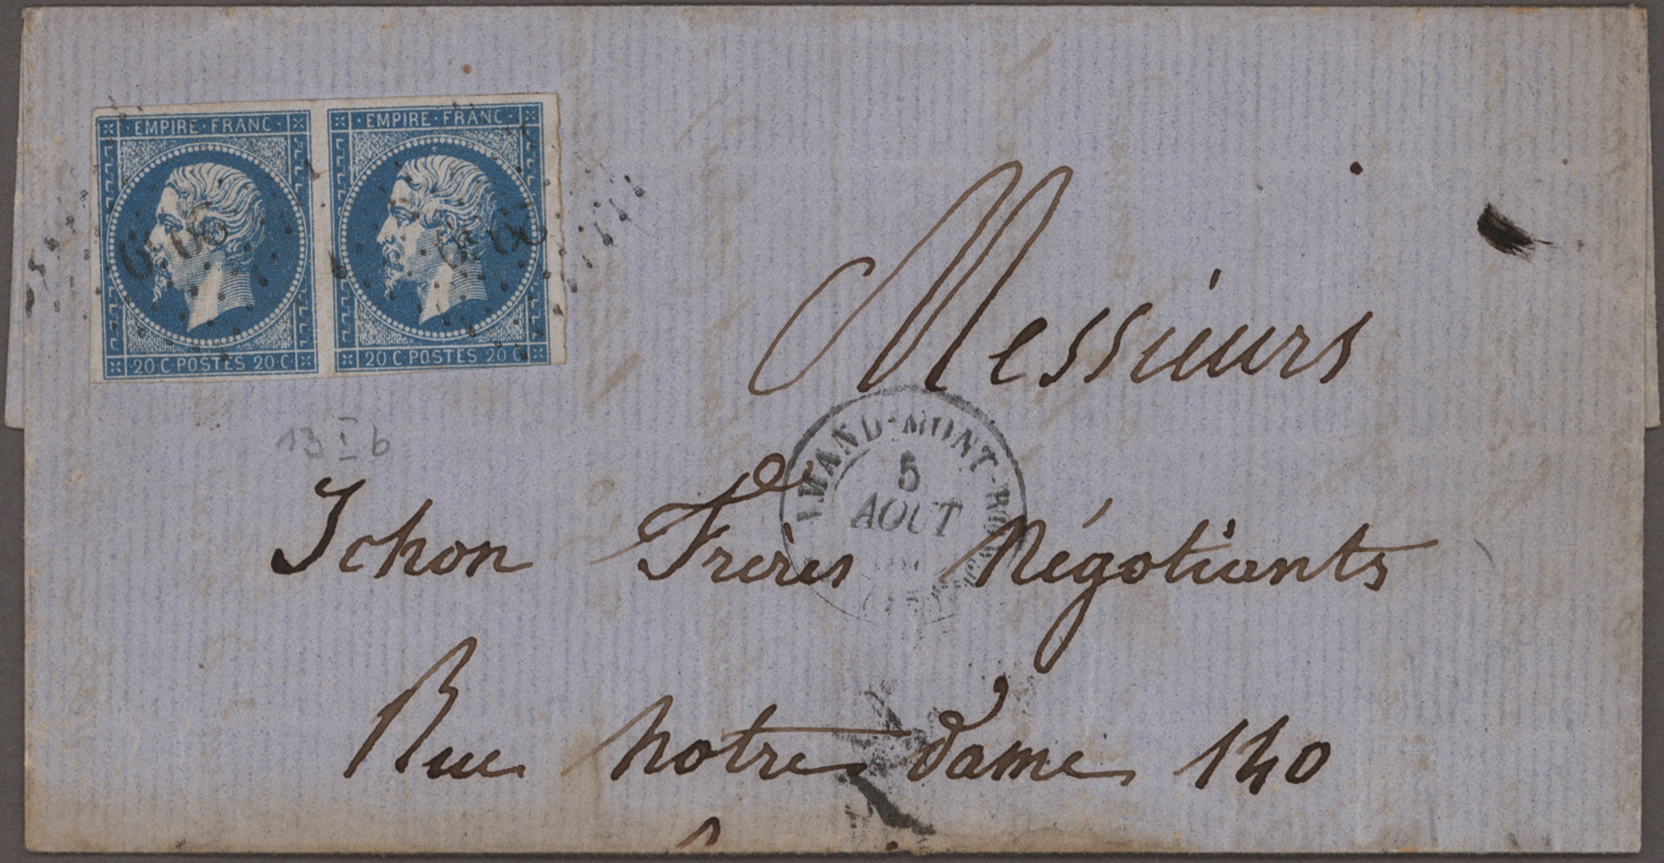 · EMPIRE · FRANC ·
· EMPIRE · FRANC ·
20 C POSTES 20 C
20 C POSTES 20 C
Messieurs
AMAND-MONT-RON
5
AOUT
13 I b
Ichon Frères Négotiants
Rue notre dame 140